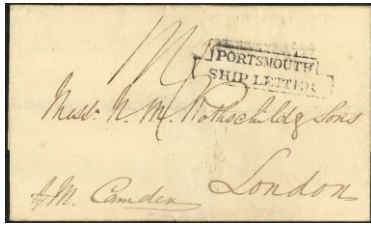 PORTSMOUTH
SHIP LETTER
Messrs. N. M. Rothschild & Sons
London
M. Camden